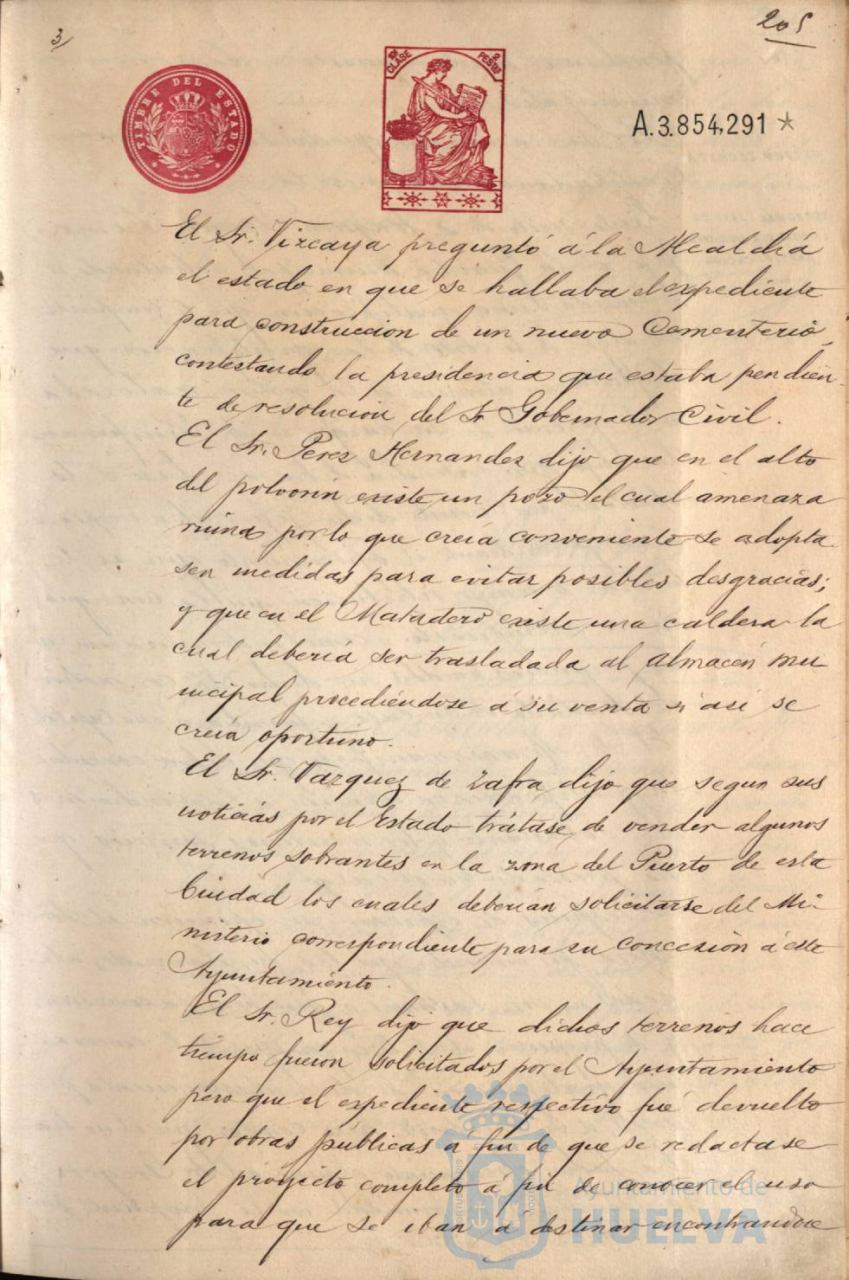 3
205
TIMBRE DEL ESTADO
CLASE
PESTS
A.3.854,291 *
El Sr. Vizcaya preguntó á la Alcaldiá
el estado en que se hallaba el expediente
para construccion de un nuevo Cementerio,
contestando la presidencia que estaba pendien-
te de resolucion del Sr Gobernador Civil.
El Sr. Perez Hernandez dijo que en el alto
del polvorin existe un pozo el cual amenaza
ruina por lo que creia conveniente se adopta-
sen medidas para evitar posibles desgracias;
y que en el Matadero existe una caldera la
cual deberiá ser trasladada al almacén mu
nicipal procediéndose á su venta si así se
creia oportuno.
El Sr. Vazquez de Zafra dijo que segun sus
noticiás por el Estado trátase de vender algunos
terrenos sobrantes en la zona del Puerto de esta
Ciudad los cuales deberian solicitarse del Mi-
nisterio correspondiente para su concesión á este
Ayuntamiento.
El Sr. Rey dijo que dichos terrenos hace
tiempo fueron solicitados por el Ayuntamiento
pero que el expediente respectivo fué devuelto
por obras públicas a fin de que se redactase
el proyecto completo á fin de conocer el uso
para que se iban a destinar encontrandose
Ayuntamiento de
HUELVA